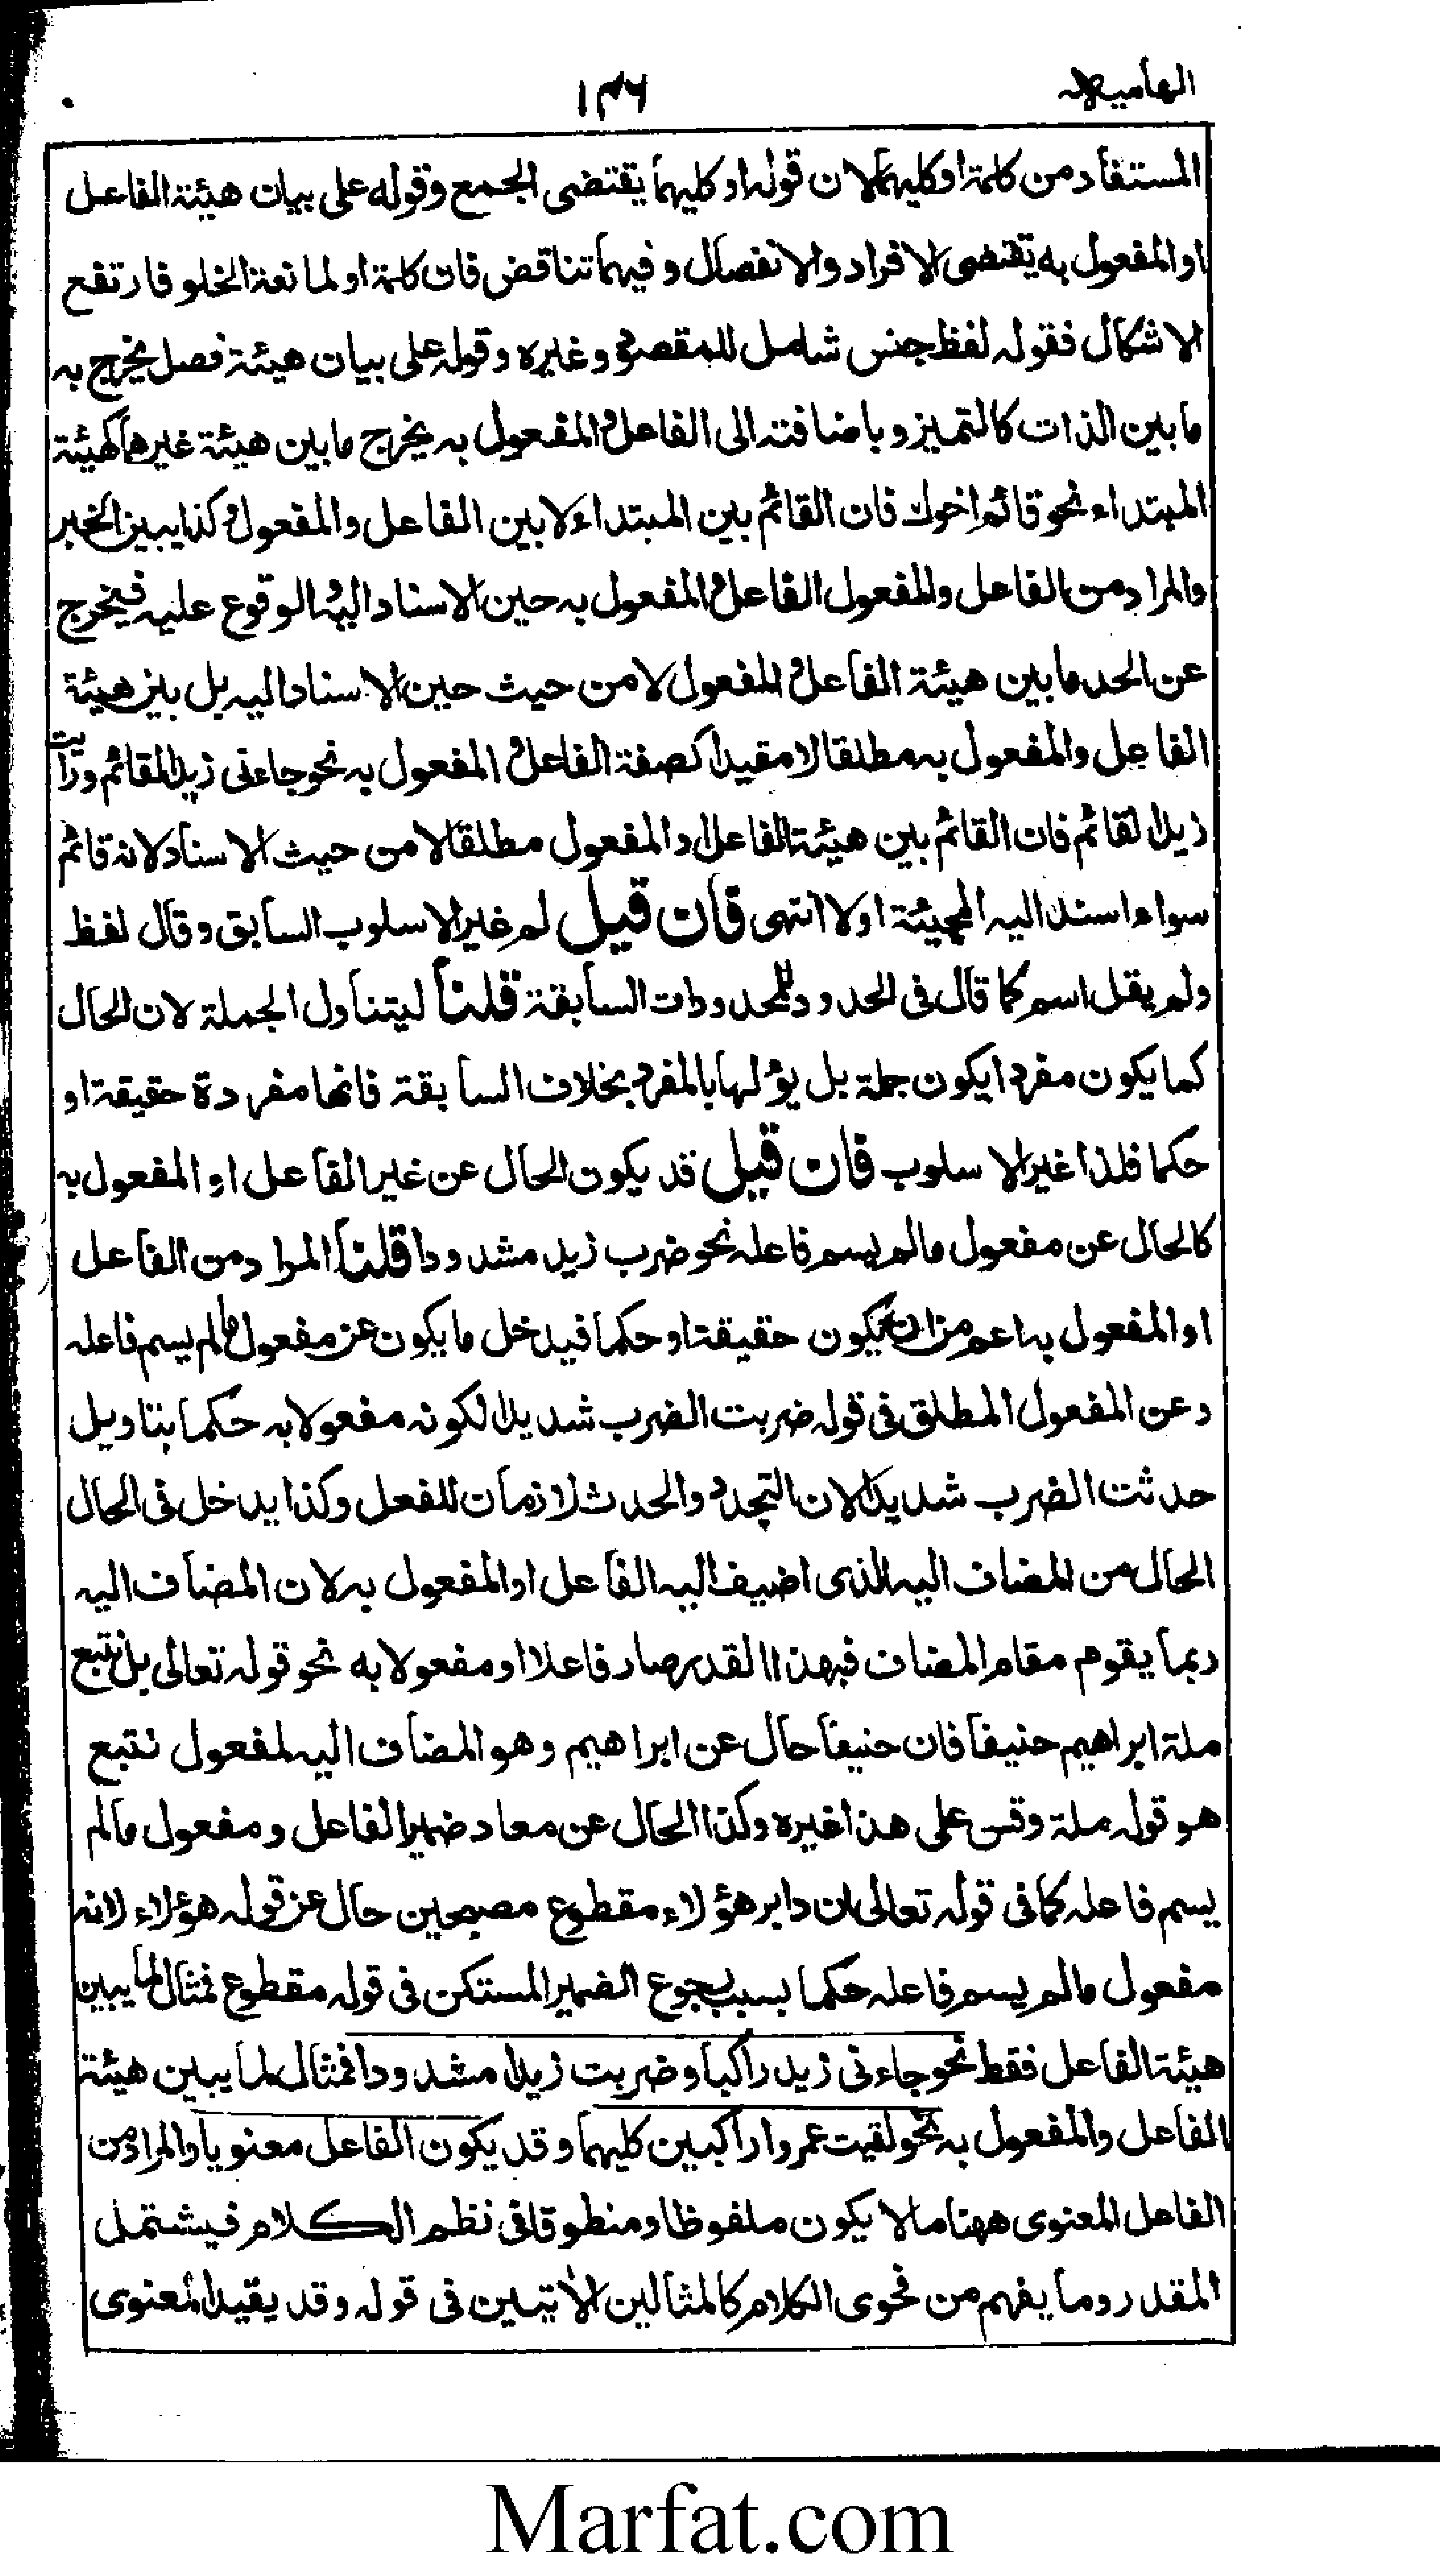 الهامیه
۱۳۶
المستفاد من كلمة او كليهما لان قوله او كليهما يقتضى الجمع وقوله على بيان هيئة الفاعل
او المفعول به يقتضى الافراد والانفصال وفيهما تناقض فان كلمة او لمانعة الخلو فارتفع
الاشكال فقوله لفظ جنس شامل للمقصود وغيره وقوله على بيان هيئة فصل يخرج به
ما بين الذات كالتميز وباضافته الى الفاعل والمفعول به يخرج ما بين هيئة غيرهما كهيئة
المبتداء نحو قائم اخوك فان القائم بين المبتداء لا بين الفاعل والمفعول وكذا يبين الخبر
والمراد من الفاعل والمفعول الفاعل والمفعول به حين الاسناد اليه والوقوع عليه فيخرج
عن الحد ما بين هيئة الفاعل والمفعول لا من حيث حين الاسناد اليه بل بين هيئة
الفاعل والمفعول به مطلقا لا مقيدا كصفة الفاعل والمفعول به نحو جاءنى زيد القائم ورايت
زيدا القائم فان القائم بين هيئة الفاعل او المفعول مطلقا لا من حيث الاسناد لانه قائم
سواء اسند اليه المجيئة او لا انتهى فان قيل لم غير الاسلوب السابق وقال لفظ
ولم يقل اسم كما قال فى الحدود للمحدودات السابقة قلنا ليتناول الجملة لان الحال
كما يكون مفردا يكون جملة بل يؤلها بالمفرد بخلاف السابقة فانها مفردة حقيقة او
حكما فلذا غير الاسلوب فان قيل قد يكون الحال عن غير الفاعل او المفعول به
كالحال عن مفعول مالم يسم فاعله نحو ضرب زيد مشدودا قلنا المراد من الفاعل
او المفعول به اعم من ان يكون حقيقة او حكما فيدخل ما يكون عن مفعول مالم يسم فاعله
وعن المفعول المطلق فى قوله ضربت الضرب شديدا لكونه مفعولا به حكما بتاويل
حدثت الضرب شديدا لان التجدد والحدث لازمان للفعل وكذا يدخل فى الحال
الحال من المضاف اليه الذى اضيف اليه الفاعل او المفعول به لان المضاف اليه
ربما يقوم مقام المضاف فبهذا القدر صار فاعلا او مفعولا به نحو قوله تعالى بل نتبع
ملة ابراهيم حنيفا فان حنيفا حال عن ابراهيم وهو المضاف اليه لمفعول نتبع
هو قوله ملة وقس على هذا غيره وكذا الحال عن معاد ضمير الفاعل ومفعول مالم
يسم فاعله كما فى قوله تعالى ان دابر هؤلاء مقطوع مصبحين حال عن قوله هؤلاء لانه
مفعول مالم يسم فاعله حكما بسبب رجوع الضمير المستكن فى قوله مقطوع فمثال لما يبين
هيئة الفاعل فقط نحو جاءنى زيد راكبا وضربت زيدا مشدودا فمثال لما يبين هيئة
الفاعل والمفعول به نحو لقيت عمروا راكبين كليهما وقد يكون الفاعل معنويا والمراد من
الفاعل المعنوى ههنا مالا يكون ملفوظا ومنطوقا فى نظم الكلام فيشتمل
المقدر وما يفهم من فحوى الكلام كالمثالين الاتيين فى قوله وقد يقيد المعنوى
Marfat.com